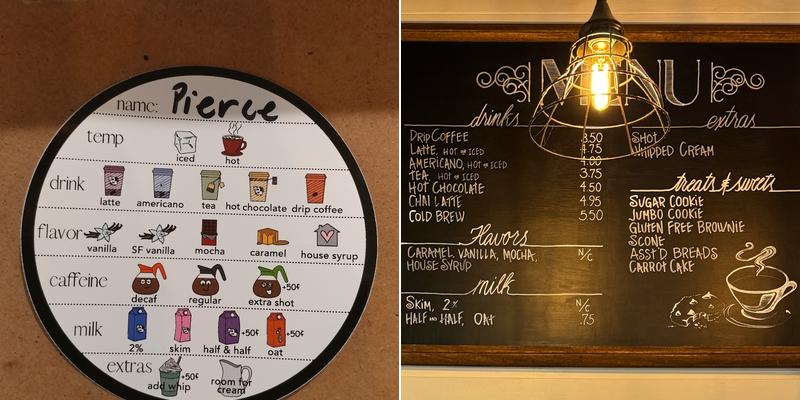 name: Pierce
temp
iced hot
drink
latte americano tea hot chocolate drip coffee
flavor
vanilla SF vanilla mocha caramel house syrup
caffeine
+50¢
decaf regular extra shot
milk
+50¢ +50¢
2% skim half & half oat
extras
+50¢
add whip room for cream
MENU
drinks
DRIP COFFEE 3.50
LATTE, HOT OR ICED 4.75
AMERICANO, HOT OR ICED 4.00
TEA, HOT OR ICED 3.75
HOT CHOCOLATE 4.50
CHAI LATTE 4.95
COLD BREW 5.50
Flavors
CARAMEL, VANILLA, MOCHA, N/C
HOUSE SYRUP
milk
SKIM, 2% N/C
HALF AND HALF, OAT .75
extras
SHOT
WHIPPED CREAM
treats & sweets
SUGAR COOKIE
JUMBO COOKIE
GLUTEN FREE BROWNIE
SCONE
ASST'D BREADS
CARROT CAKE